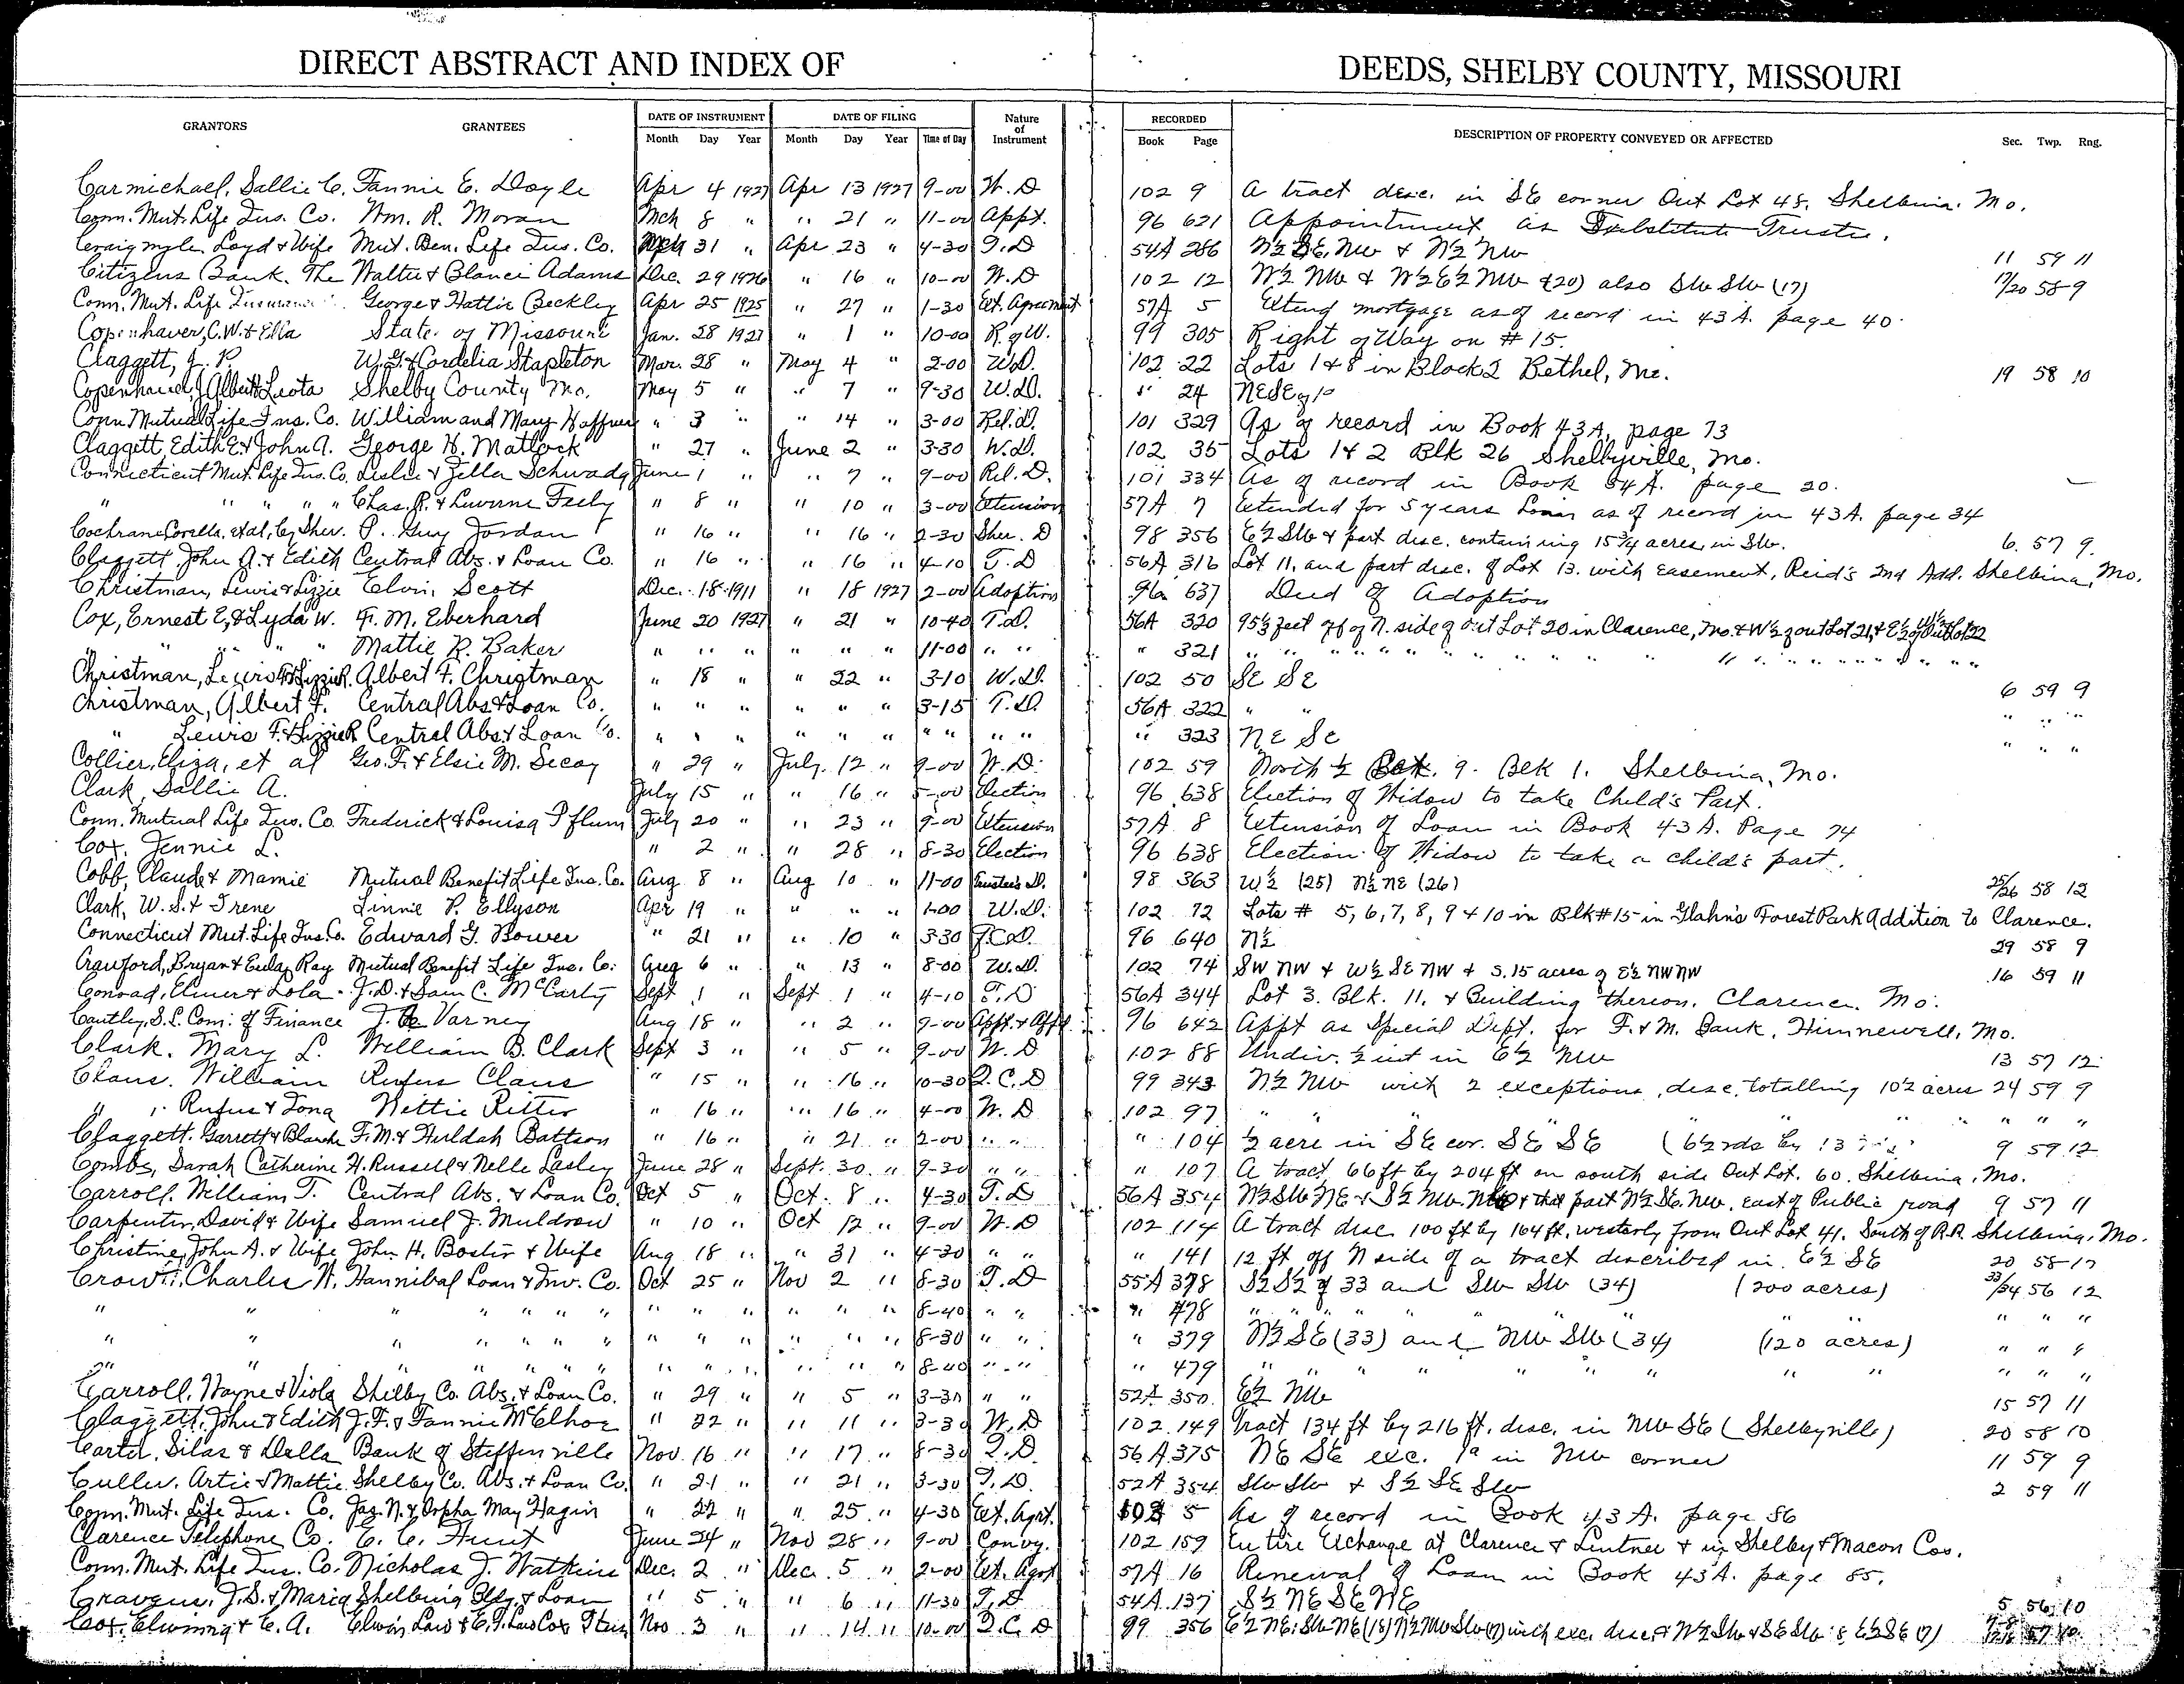 DIRECT ABSTRACT AND INDEX OF DEEDS, SHELBY COUNTY, MISSOURI
GRANTORS GRANTEES DATE OF INSTRUMENT DATE OF FILING Nature of Instrument RECORDED DESCRIPTION OF PROPERTY CONVEYED OR AFFECTED Sec. Twp. Rng.
Month Day Year Month Day Year Time of Day Book Page
Carmichael, Sallie C. Fannie E. Doyle Apr 4 1927 Apr 13 1927 9-00 W. D 102 9 A tract desc. in SE corner Out Lot 48, Shelbina. Mo.
Conn. Mut. Life Ins. Co. Wm. R. Moran Mch 8 " " 21 " 11-00 Appt. 96 621 Appointment as Substitute Trustee.
Craigmyle Loyd & Wife Mut. Ben. Life Ins. Co. Mch 31 " Apr 23 " 4-30 T. D 54A 286 N½ SE, NW & N½ NW 11 59 11
Citizens Bank. The Walter & Blanci Adams Dec. 29 1926 " 16 " 10-00 W. D 102 12 W½ NW & W½ E½ NW (20) also SW SW (17) 17/20 58 9
Conn. Mut. Life Insurance George & Hattie Beckley Apr 25 1925 " 27 " 1-30 Ext. Agreement 57A 5 Extend mortgage as of record in 43 A. page 40.
Copenhaver, C.W. & Ella State of Missouri Jan. 28 1927 " 1 " 10-00 R. of W. 99 305 Right of Way on # 15.
Claggett, J. P. W. G. & Cordelia Stapleton Mar. 28 " May 4 " 2-00 W.D. 102 22 Lots 1 & 8 in Block 2 Bethel, Mo.
Copenhaver, J. Albert & Leota Shelby County Mo. May 5 " " 7 " 9-30 W.D. " 24 NE SE 19 58 10
Conn Mutual Life Ins. Co. William and Mary Haffner " 3 " " 14 " 3-00 Rel. D. 101 329 As of record in Book 43A, page 73
Claggett, Edith E. & John A. George H. Matlock " 27 " June 2 " 3-30 W.D. 102 35 Lots 1 & 2 Blk 26 Shelbyville, Mo.
Connecticut Mut. Life Ins. Co. Leslie & Zella Schwada June 1 " " 7 " 9-00 Rel. D. 101 334 As of record in Book 34 A. page 20.
" " " " " Chas. R. & Luverne Feely " 8 " " 10 " 3-00 Extension 57A 7 Extended for 5 years Loan as of record in 43 A. page 34
Cochran Corella, et al, by Sher. P. Guy Jordan " 16 " " 16 " 2-30 Sher. D 98 356 E½ SW & part desc. containing 15¾ acres, in SW. 6. 57 9.
Claggett John A. & Edith Central Abs. & Loan Co. " 16 " " 16 " 4-10 T. D 56A 316 Lot 11, and part desc. of Lot 13. with easement, Reid's 2nd Add. Shelbina, Mo.
Christman, Lewis & Lizzie Elvin Scott Dec. 18 1911 " 18 1927 2-00 Adoption 96 637 Deed of Adoption
Cox, Ernest E, & Lyda W. F. M. Eberhard June 20 1927 " 21 " 10-40 T.D. 56A 320 95½ feet off of N. side of Out Lot 20 in Clarence, Mo. & W½ of out Lot 21, & E½ of W½ of Out Lot 22
" " " " Mattie R. Baker " " " " " " 11-00 " " " 321 " " " " " " " "
Christman, Lewis F. & Lizzie R. Albert F. Christman " 18 " " 22 " 3-10 W.D. 102 50 SE SE 6 59 9
Christman, Albert F. Central Abs & Loan Co. " " " " " " 3-15 T.D. 56A 322 " " " " "
" Lewis F. & Lizzie R Central Abs & Loan Co. " " " " " " " " " " " 323 NE SE " " "
Collier, Eliza, et al Geo. F. & Elsie M. Decoy " 29 " July. 12 " 9-00 W. D. 102 59 North ½ 9. Blk 1. Shelbina, Mo.
Clark, Sallie A. July 15 " " 16 " 5-00 Election 96 638 Election of Widow to take Child's Part.
Conn. Mutual Life Ins. Co. Frederick & Louisa Pflum July 20 " " 23 " 9-00 Extension 57A 8 Extension of Loan in Book 43 A. Page 74
Cox, Jennie L. " 2 " " 28 " 8-30 Election 96 638 Election of Widow to take a child's part.
Cobb, Claude & Mamie Mutual Benefit Life Ins. Co. Aug 8 " Aug 10 " 11-00 Trustee's D. 98 363 W½ (25) N½ NE (26) 25/26 58 12
Clark, W. S. & Irene Linnie P. Ellyson Apr 19 " " " " 1-00 W.D. 102 72 Lots # 5, 6, 7, 8, 9 & 10 in Blk #15 in Glahn's Forest Park Addition to Clarence.
Connecticut Mut. Life Ins. Co. Edward G. Bower " 21 " " 10 " 3-30 96 640 N½ 29 58 9
Crawford, Bryan & Eula Ray Mutual Benefit Life Ins. Co. Aug 6 " " 13 " 8-00 W.D. 102 74 SW NW & W½ SE NW & S. 15 acres of E½ NW NW 16 59 11
Conrad, Elmer & Lola J. D. & Sam C. McCarty Sept 1 " Sept 1 " 4-10 T. D 56A 344 Lot 3. Blk. 11. & Building thereon. Clarence. Mo.
Cantley, S. L. Com. of Finance Varney Aug 18 " " 2 " 9-00 Appt. & 96 642 Appt as Special Dept. for F. & M. Bank, Hunnewell, Mo.
Clark. Mary L. William B. Clark Sept 3 " " 5 " 9-00 W. D 102 88 Undiv. ½ int in E½ NW 13 57 12
Claus. William Rufus Claus " 15 " " 16 " 10-30 Q. C. D 99 343 N½ NW with 2 exceptions, desc. totalling 10½ acres 24 59 9
" " Rufus & Iona Nettie Ritter " 16 " " 16 " 4-00 W. D 102 97 " " " " " " " "
Claggett. Garrett & Blanche F. M. & Huldah Battson " 16 " " 21 " 2-00 " " " 104 ½ acre in SE cor. SE SE (6½ rds by 9 59 12
Combs, Sarah Catherine H. Russell & Nelle Lasley June 28 " Sept. 30 " 9-30 " " " 107 A tract 66 ft by 204 ft on south side Out Lot. 60. Shelbina, Mo.
Carroll. William T. Central Abs. & Loan Co. Oct 5 " Oct. 8 " 4-30 T. D 56A 354 N½ SW NE & S½ NW NE & that part N½ SE, NW, east of Public road 9 57 11
Carpenter, David & Wife Samuel J. Muldrow " 10 " Oct 12 " 9-00 W. D 102 114 A tract desc 100 ft by 164 ft, westerly from Out Lot 41. South of R.R. Shelbina, Mo.
Christine, John A. & Wife John H. Boster & Wife Aug 18 " " 31 " 4-30 " " " 141 12 ft off N side of a tract described in E½ SE 20 58
Charles W. Hannibal Loan & Inv. Co. Oct 25 " Nov 2 " 8-30 T. D 55A 378 S½ S½ of 33 and SW SW (34) (200 acres) 33/34 56 12
" " " " " " " " " " " " " 8-40 " " " 478 " " " " " " " "
" " " " " " " " " " " " 8-30 " " " 379 N½ SE (33) and NW SW (34) (120 acres) " " "
" " " " " " " " " " " " 8-40 " " " 479 " " " " " " " "
Carroll, Wayne & Viola Shelby Co. Abs. & Loan Co. " 29 " " 5 " 3-30 " " 52A 350 E½ NW 15 57 11
Claggett, John & Edith J. F. & Fannie McElhoe " 22 " " 11 " 3-30 W. D 102 149 Tract 134 ft by 216 ft. desc. in NW SE (Shelbyville) 20 58 10
Carter. Silas & Della Bank of Steffenville Nov. 16 " " 17 " 8-30 T. D 56A 375 NE SE exc. 1a in NW corner 11 59 9
Culler, Artie & Mattie Shelby Co. Abs. & Loan Co. " 21 " " 21 " 3-30 T. D. 52A 354 SW SW & S½ SE SW 2 59 11
Conn. Mut. Life Ins. Co. Jas. N. & Orpha May Hagin " 22 " " 25 " 4-30 Ext. Agrt. 5 As of record in Book 43 A. page 86
Clarence Telephone Co. E. C. Hunt June 24 " Nov 28 " 9-00 Convy. 102 159 Entire Exchange at Clarence & Lentner & in Shelby & Macon Cos.
Conn. Mut. Life Ins. Co. Nicholas J. Watkins Dec. 2 " Dec. 5 " 2-00 Ext. Agrt 57A 16 Renewal of Loan in Book 43 A. page 85.
Cravens, J. S. & Maria Shelbina Bldg. & Loan " 5 " " 6 " 11-30 T. D 54A 137 S½ NE SE NE 5 56 10
Cox. & C. A. Nov. 3 " " 14 " 10-00 Q. C. D 99 356 E½ NE; SW NE (18) N½ NW SW (17) with exc. desc. & N½ SW & SE SW & E½ SE (7)